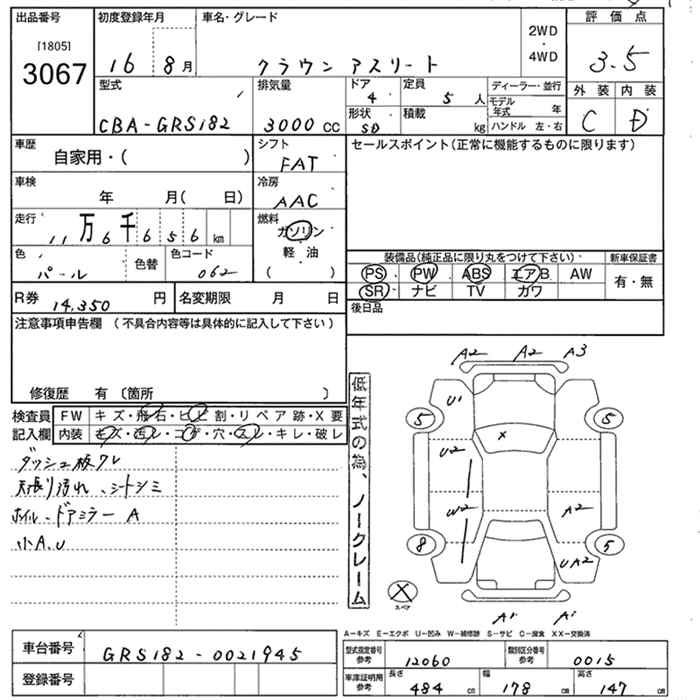 出品番号 初度登録年月 車名・グレード 2WD・4WD 評価点
[1805]
3067 16 8月 クラウン アスリート 3.5
型式 排気量 ドア 4 定員 5人 ディーラー・並行 外装 内装
モデル年式 年
CBA-GRS182 3000cc 形状 SD 積載 kg ハンドル 左・右 C D
車歴 シフト セールスポイント(正常に機能するものに限ります)
自家用・( ) FAT
車検 冷房
年 月( 日) AAC
走行 燃料
11万6千656km ガソリン
軽油
( )
装備品(純正品に限り丸をつけて下さい) 新車保証書
色 色替 色コード
パール 062
PS PW ABS エアB AW 有・無
SR ナビ TV カワ
R券 14,350円 名変期限 月 日
後日品
注意事項申告欄 (不具合内容等は具体的に記入して下さい)
修復歴 有〔箇所 〕
検査員 FW キズ・飛石・ヒビ割・リペア跡・X要
記入欄 内装 キズ・汚レ・コゲ・穴・スレ・キレ・破レ
ダッシュ板ワレ
天張り汚れ、シートシミ
ホイル、ドアミラー A
小A.U
低年式の為、ノークレーム
A2 A2 A3
U1
5 5
X
U2
W2 A2
8 5
UA2
X
スペア
A1 A1
A-キズ E-エクボ U-凹み W-補修跡 S-サビ C-腐食 XX-交換済
車台番号 GRS182-0021945
登録番号
型式指定番号 参考 12060 類別区分番号 参考 0015
車庫証明用 参考 長さ 484cm 幅 178cm 高さ 147cm